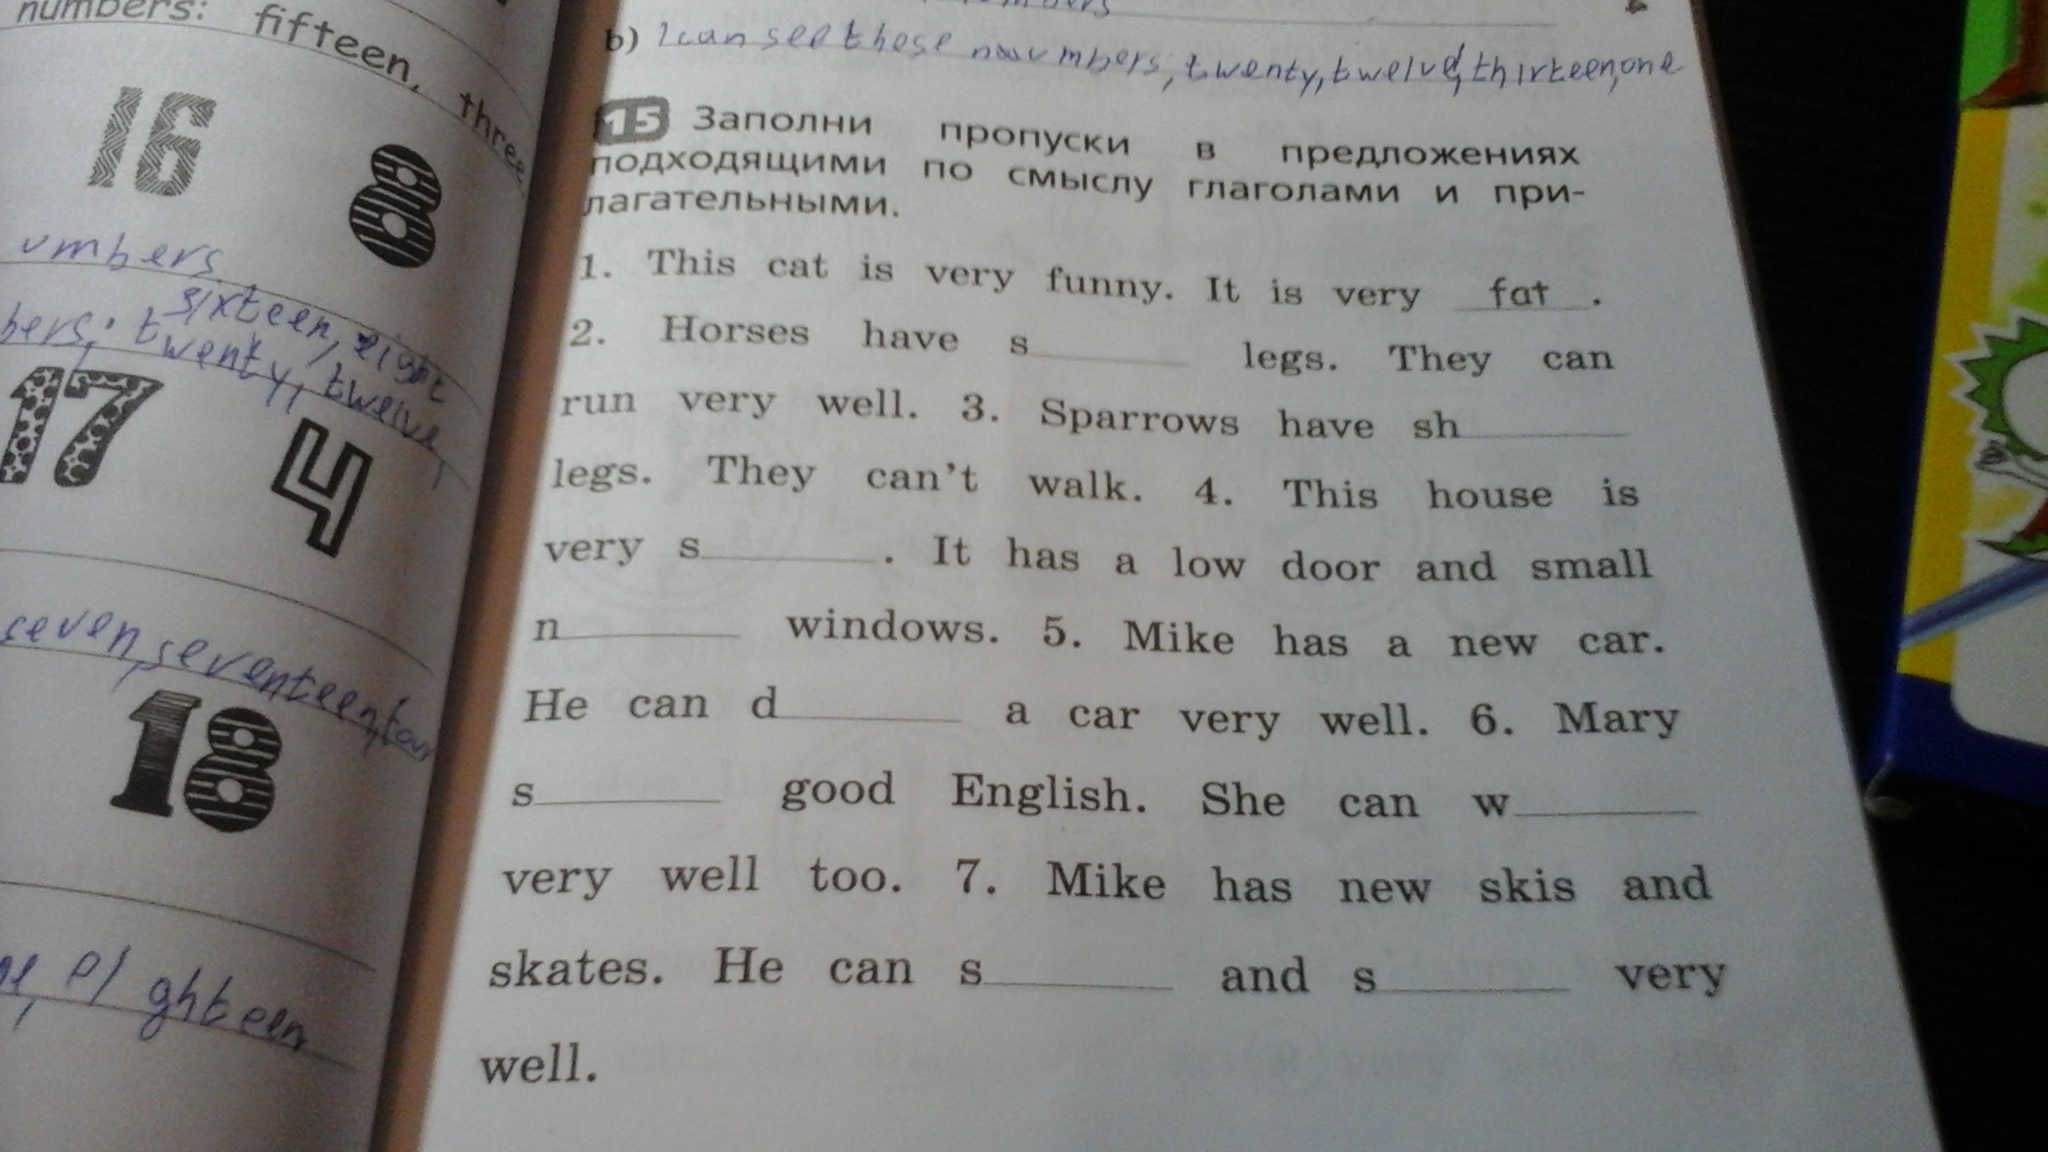 numbers: fifteen, three
umbers
sixteen, eight
bers: twenty, twelve,
seven, seventeen, four
eighteen
b) I can see those nuumbers, twenty, twelve, thirteen, one
15 Заполни пропуски в предложениях
подходящими по смыслу глаголами и при-
лагательными.
1. This cat is very funny. It is very fat .
2. Horses have s________ legs. They can
run very well. 3. Sparrows have sh________
legs. They can't walk. 4. This house is
very s________ . It has a low door and small
n________ windows. 5. Mike has a new car.
He can d________ a car very well. 6. Mary
s________ good English. She can w________
very well too. 7. Mike has new skis and
skates. He can s________ and s________ very
well.
16
8
17
4
18